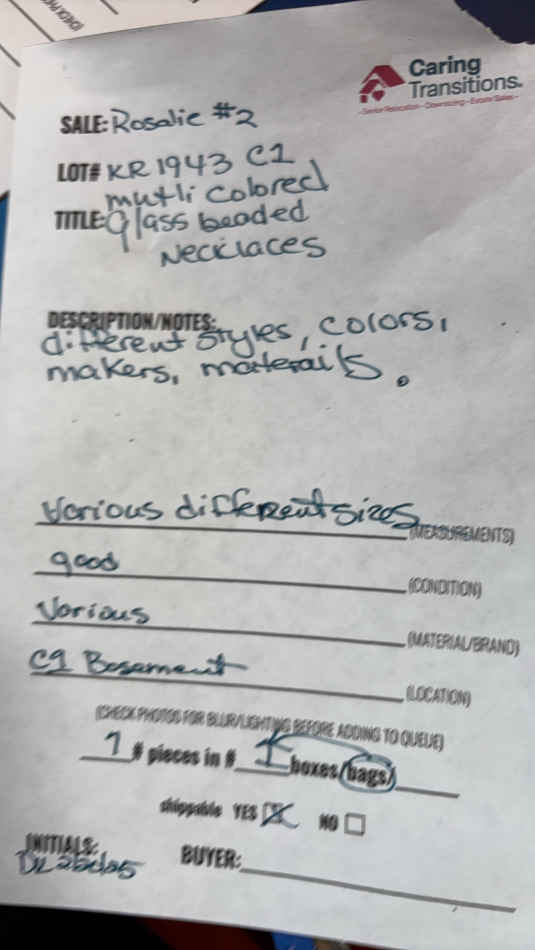 Caring
Transitions
- Senior Relocation - Downsizing - Estate Sales -
SALE: Rosalie #2
LOT# KR 1943 C1
mutli colored
TITLE: Glass beaded
Necklaces
DESCRIPTION/NOTES:
different styles, colors,
makers, materails.
Various different sizes
(MEASUREMENTS)
good
(CONDITION)
Various
(MATERIAL/BRAND)
C1 Basement
(LOCATION)
(CHECK PHOTOS FOR BLUR/LIGHTING BEFORE ADDING TO QUEUE)
7 # pieces in # 1 boxes/bags/
shippable YES NO
INITIALS:
BUYER: